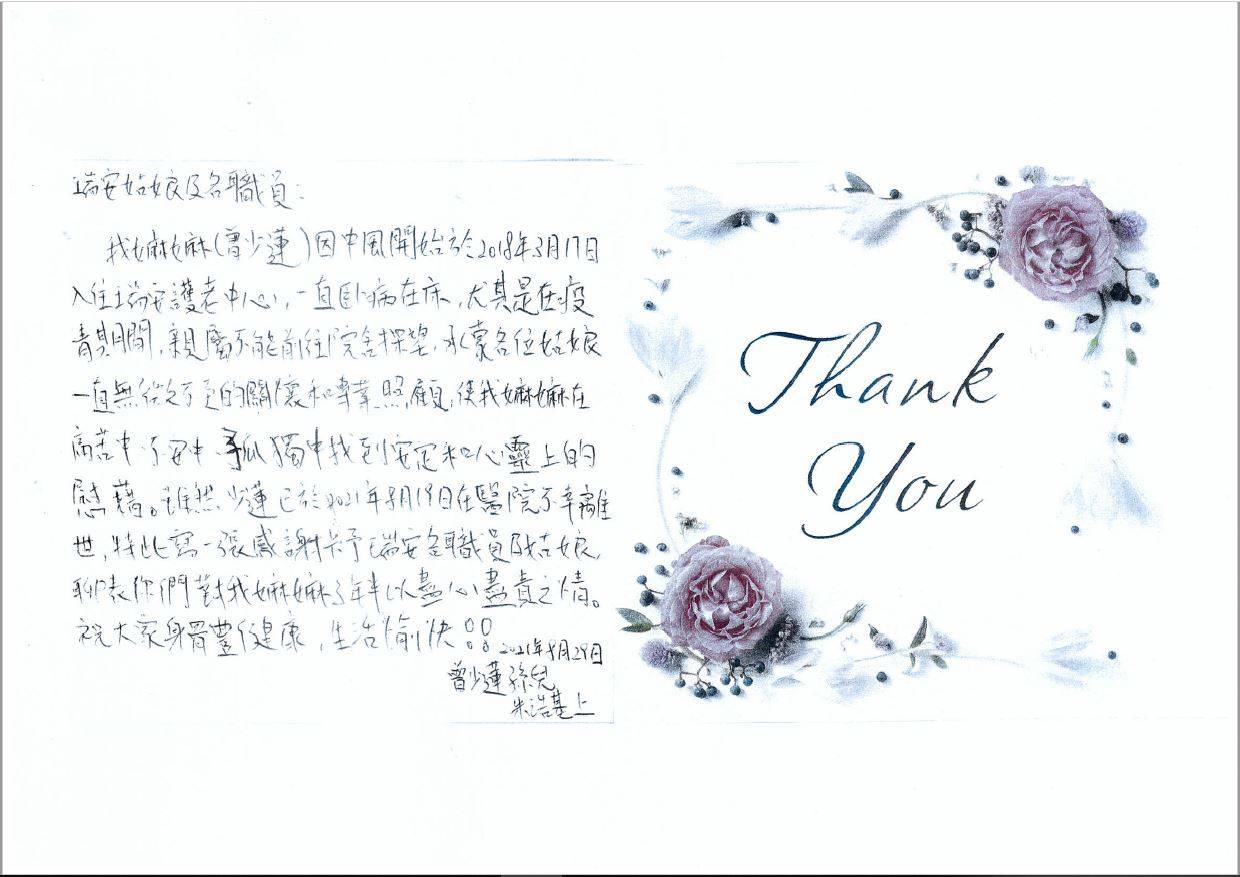 瑞安姑娘及各職員：
我嫲嫲(曾少蓮)因中風開始於2018年3月17日
入住瑞安護老中心，一直臥病在床，尤其是在疫
情期間，親屬不能前往院舍探望，承蒙各位姑娘
一直無微不至的關懷和專業照顧，使我嫲嫲在
病苦中、不安中、孤獨中找到安定和心靈上的
慰藉。雖然少蓮已於2021年8月19日在醫院不幸離
世，特此寫一張感謝卡予瑞安各職員及姑娘，
聊表你們對我嫲嫲3年半以盡心盡責之情。
祝大家身體健康，生活愉快!!
2021年9月29日
曾少蓮孫兒
朱浩基上
Thank
You